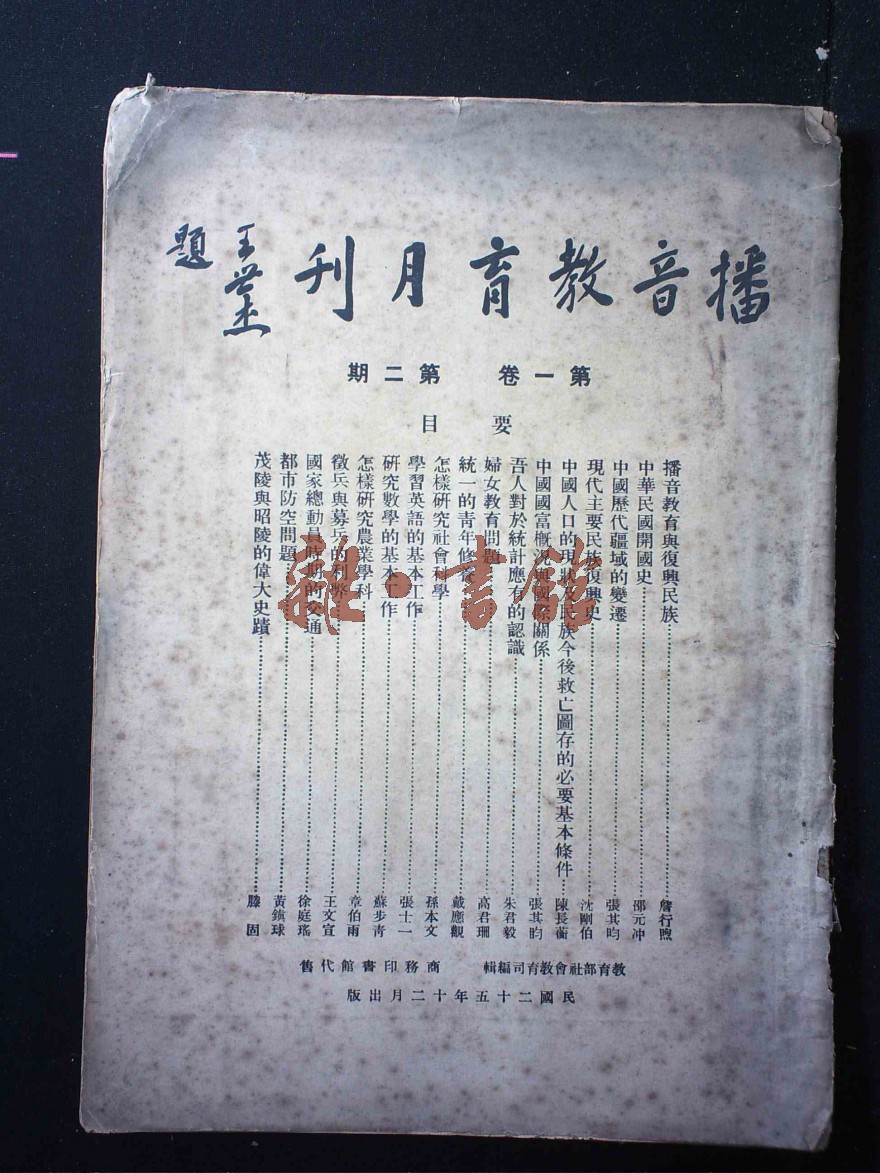 播音教育月刊
王世杰題
第一卷 第二期
要目
播音教育與復興民族 詹行煦
中華民國開國史 邵元冲
中國歷代疆域的變遷 張其昀
現代主要民族復興史 沈剛伯
中國人口的現狀及民族今後救亡圖存的必要基本條件 陳長蘅
中國國富概況與國際關係 張其昀
吾人對於統計應有的認識 朱君毅
婦女教育問題 高君珊
統一的青年修養 戴應觀
怎樣研究社會科學 孫本文
學習英語的基本工作 張士一
研究數學的基本工作 蘇步靑
怎樣研究農業學科 章伯雨
徵兵與募兵的利弊 王文宣
國家總動員時期的交通 徐庭瑤
都市防空問題 黃鎭球
茂陵與昭陵的偉大史蹟 滕固
教育部社會教育司編輯 商務印書館代售
民國二十五年十二月出版
雜·書館